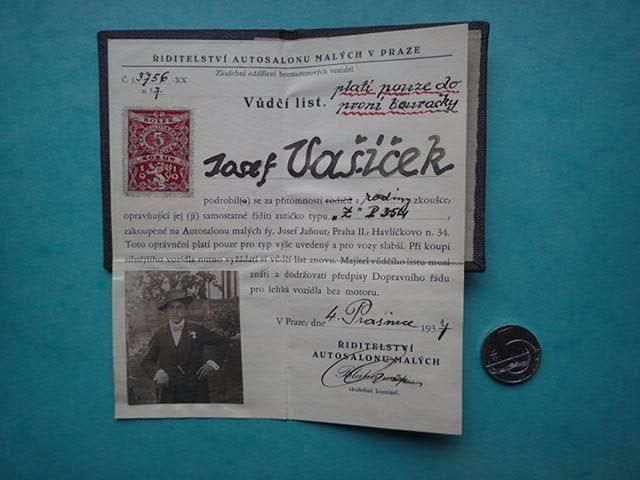 ŘIDITELSTVÍ AUTOSALONU MALÝCH V PRAZE
Č 3756 -XX
Zkušební oddělení bezmotorových vozidel
7.
Vůdčí list.
platí pouze do
první bouračky
KOLEK
5
KORUN
1919
Josef Vašíček
podrobil(a) se za přítomnosti rodičů a rodiny zkoušce,
opravňující jej (ji) samostatně říditi autíčko typu „Z"
zakoupené na Autosalonu malých fy. Josef Jaňour, Praha II., Havlíčkovo n. 34.
Toto oprávnění platí pouze pro typ výše uvedený a pro vozy slabší. Při koupi
silnějšího vozidla nutno vyžádati si vůdčí list znovu. Majitel vůdčího listu musí
znáti a dodržovati předpisy Dopravního řádu
pro lehká vozidla bez motoru.
V Praze, dne 4. 193
ŘIDITELSTVÍ
AUTOSALONU MALÝCH
zkušební komisař.